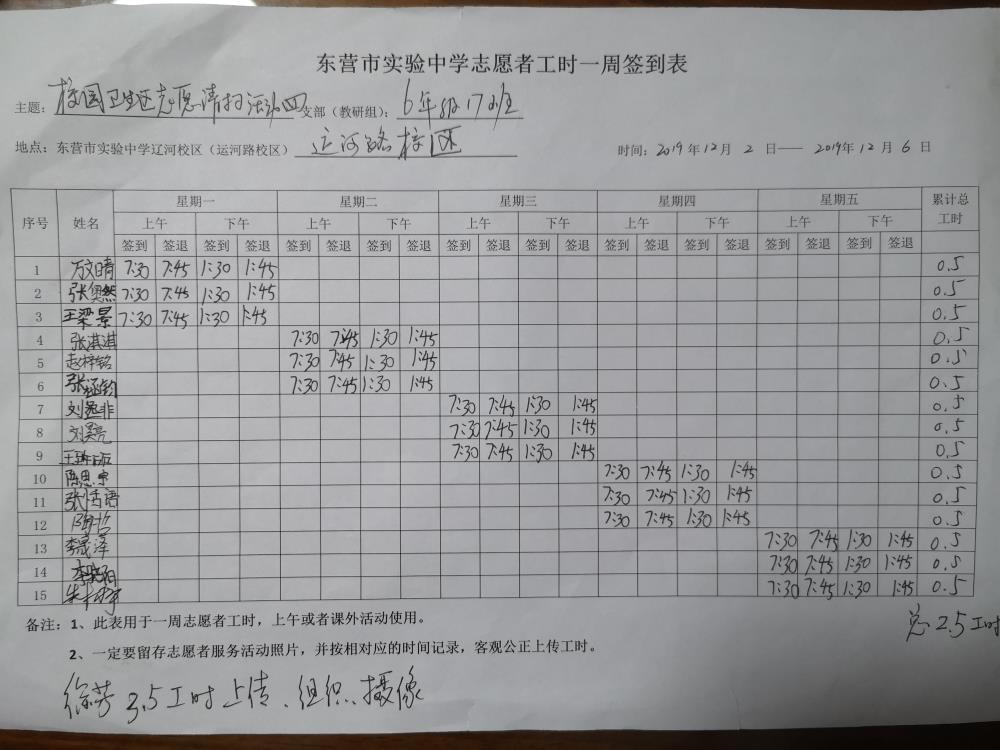 东营市实验中学志愿者工时一周签到表
主题：校园卫生区志愿清扫活动四 支部（教研组）：6年级17班
地点：东营市实验中学辽河校区（运河路校区） 运河路校区 时间：2019年12月2日—— 2019年12月6日
序号 姓名 星期一 星期二 星期三 星期四 星期五 累计总工时
上午 下午 上午 下午 上午 下午 上午 下午 上午 下午
签到 签退 签到 签退 签到 签退 签到 签退 签到 签退 签到 签退 签到 签退 签到 签退 签到 签退 签到 签退
1 万文晴 7:30 7:45 1:30 1:45 0.5
2 张奥然 7:30 7:45 1:30 1:45 0.5
3 王梁景 7:30 7:45 1:30 1:45 0.5
4 张淇淇 7:30 7:45 1:30 1:45 0.5
5 赵梓铭 7:30 7:45 1:30 1:45 0.5
6 张涵钧 7:30 7:45 1:30 1:45 0.5
7 7:30 7:45 1:30 1:45 0.5
8 刘昊亮 7:30 7:45 1:30 1:45 0.5
9 7:30 7:45 1:30 1:45 0.5
10 陈思宇 7:30 7:45 1:30 1:45 0.5
11 张恬语 7:30 7:45 1:30 1:45 0.5
12 7:30 7:45 1:30 1:45 0.5
13 李晟泽 7:30 7:45 1:30 1:45 0.5
14 7:30 7:45 1:30 1:45 0.5
15 7:30 7:45 1:30 1:45 0.5
备注：1、此表用于一周志愿者工时，上午或者课外活动使用。
总2.5工时
2、一定要留存志愿者服务活动照片，并按相对应的时间记录，客观公正上传工时。
徐芳 3.5工时上传、组织、摄像